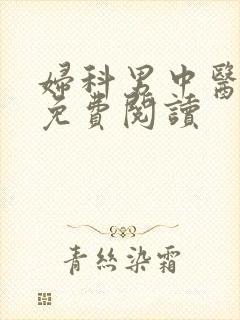 婦科男中醫
免費閱讀
青絲染霜